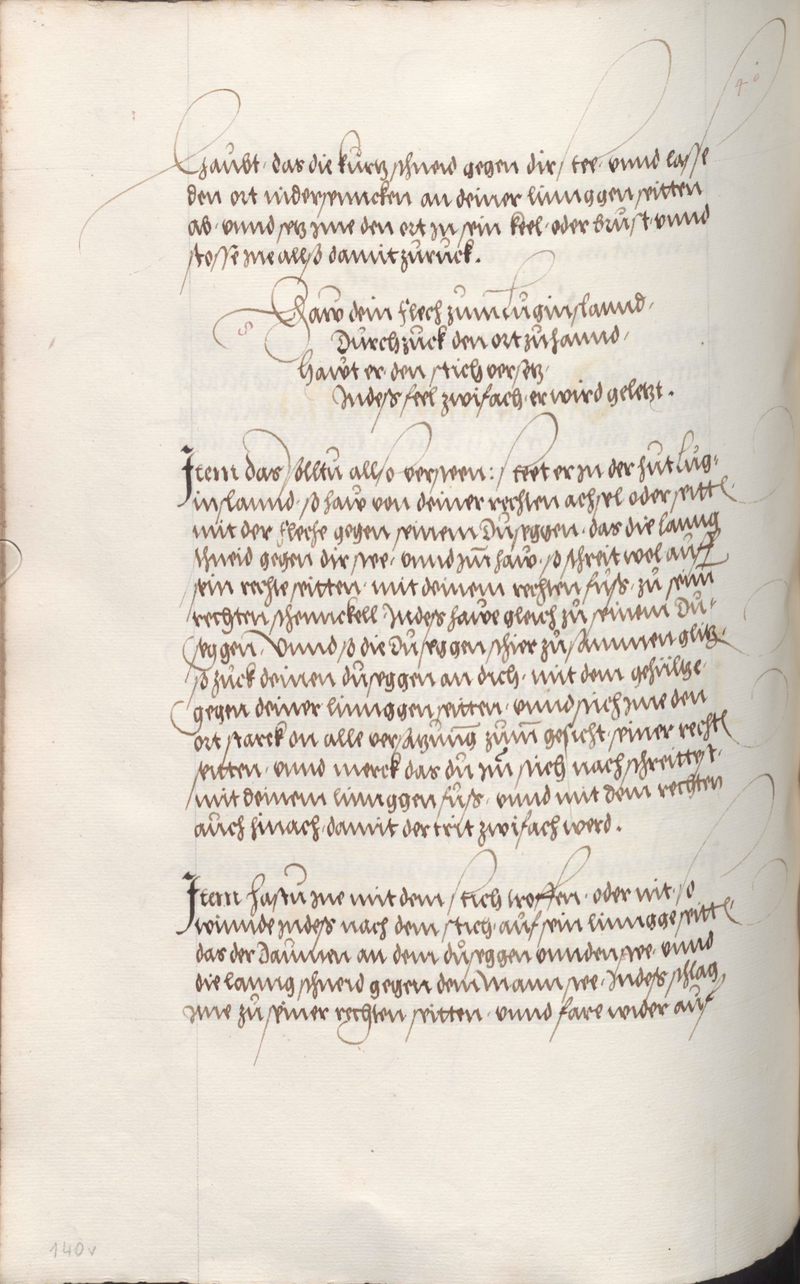 40
haubt · das die kurtz schneid gegen dir stee · unnd lasse
den ort nidersinncken an deiner linnggen seitten
ab · unnd setz ime den ort in sein keel · oder brust · unnd
stossē ine allso damit zuruck .
8
Haw dein flech zum̄ luginslannd ·
Durchzuck den ort zuhannd ·
Hawt er · den stich versetz ·
Indess feel zwifach · er wird geletzt .
Item das solltu allso versteen : steet er in der hut lug-
inslannd · so haw von deiner rechten achsel oder seitt
mit der fleche gegen seinem Duseggen · das die lanng
schneid gegen dir stee · unnd im̄ haw · so schreit wol auf
sein rechte seitten · mit deinem rechten fuss · zu seim
rechten schennckell Indess hawe gleich zu seinem Du-
seggen · Unnd so die Duseggen schier zusammen glitz
so zuck deinen duseggen an dich · mit dem gehiltze
gegen deiner linnggen seitten · unnd stich ime den
ort starck on alle versatzung zum̄ gesicht · seiner recht
seitten · unnd merck das du im̄ stich nachschreittest ·
mit deinem linnggen fuss · unnd mit dem rechten
auch hinach · damit der trit zwifach werd .
Item hastu ine mit dem stich troffen · oder nit · so
winnde indess nach dem stich · auf sein linngge seitt
das der Daumen an dem duseggen unnden stee · unnd
die lanng schneid gegen dem Mann stee · Indess schlag
ime zu seiner rechten seitten · unnd fare wider auf
140v